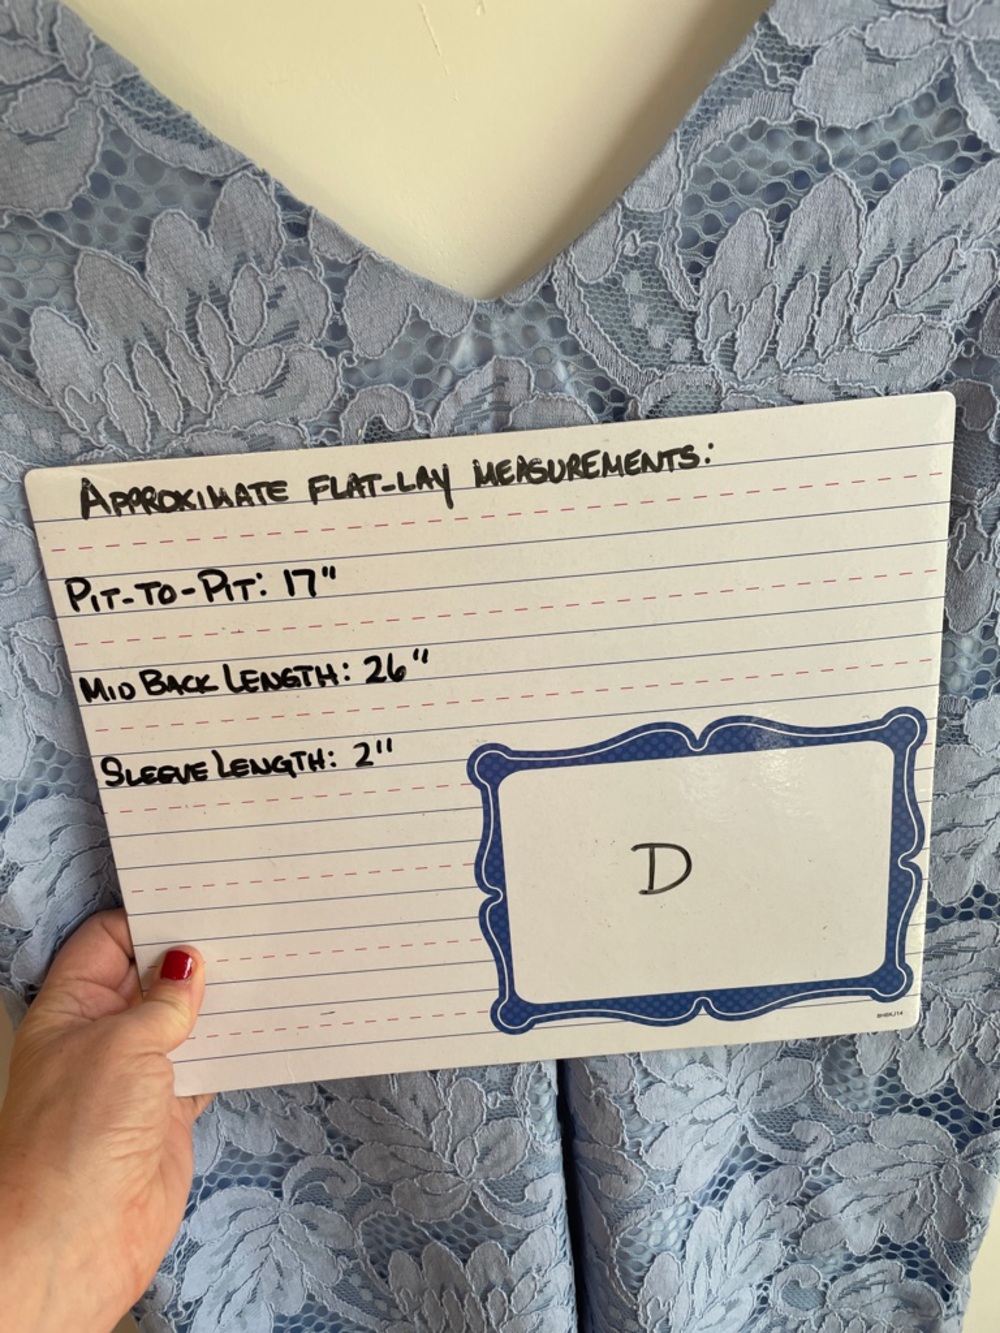 APPROXIMATE FLAT-LAY MEASUREMENTS:
PIT-TO-PIT: 17"
MID BACK LENGTH: 26"
SLEEVE LENGTH: 2"
D